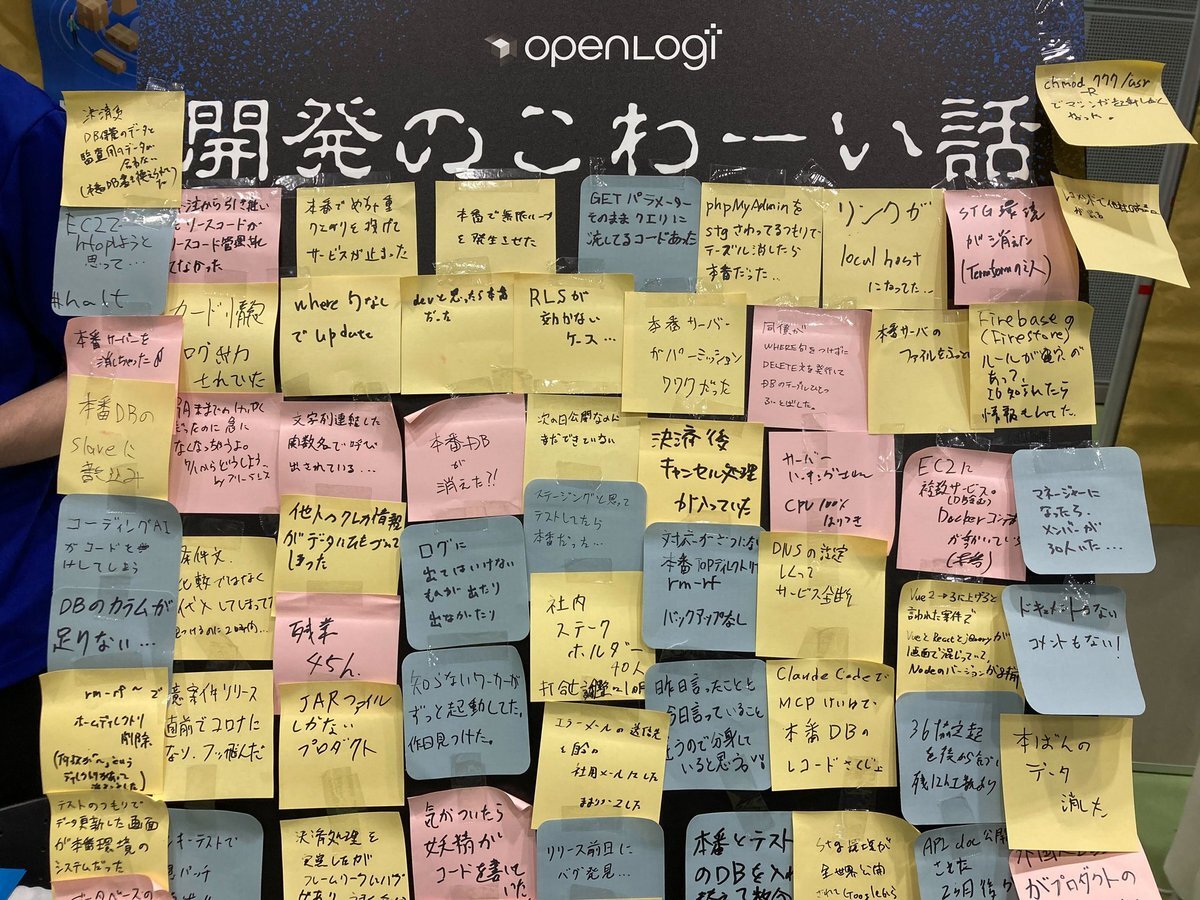 openLogi
開発のこわーい話
chmod 777 /usr
-R
でマシンが起動しなく
なった。
決済系
DB保管のデータと
監査用のデータが
合わない
EC2で
htopしようと
思って…
#halt
本番でめちゃ重
クエリを投げて
サービスが止まった
本番で無限ループ
を発生させた
GETパラメーター
そのままクエリに
流してるコードあった
phpMyAdminを
stgさわってるつもりで
テーブル消したら
本番だった…
リンクが
localhost
になってた…
STG環境
が消えた
(Terraformの住人)
カード情報
ログ出力
されていた
where句なし
でupdate
devと思ったら本番
だった
RLSが
効かない
ケース…
本番サーバー
がパーミッション
777だった
同僚が
WHERE句をつけずに
DELETE文を発行して
DBのテーブルひとつ
ふっとばした。
本番サーバの
ファイルをふっと
Firebaseの
(Firestore)
ルールが
あって、
ID知られたら
情報もれてた。
本番サーバーを
消しちゃった
本番DBの
slaveに
書込み
文字列連結した
関数名で呼び
出されている…
本番DB
が
消えた?!
次の日公開なのに
まだできていない
決済後
キャンセル処理
が入っていた
サーバー
CPU 100%
はりつき
EC2に
複数サービス。
(DB含む)
Dockerコンテナ
マネージャーに
なったら、
メンバーが
30人いた…
コーディングAI
がコードを
けしてしまう
他人のクレカ情報
がデータにひもづいて
しまった
ステージングと思って
テストしてたら
本番だった…
ログに
出てはいけない
ものが出たり
出なかったり
本番TOPディレクトリ
rm -rf
バックアップ無し
DNSの設定
しくって
サービス全断
DBのカラムが
足りない…
条件文、
比較ではなく
代入してしまって
残業
45h.
社内
ステーク
ホルダー
40人
打合せ調整〜1ヶ月
Vue2→3に上げると
言われた案件で
VueとReactとjQueryが
1画面で混じっていて、
Nodeのバージョンが
ドキュメントがない
コメントもない!
rm -rf ~ で
ホームディレクトリ
削除
案件リリース
直前でコロナに
なり、フッ飛んだ
JARファイル
しかない
プロダクト
知らないワーカーが
ずっと起動してた。
昨日見つけた。
昨日言ったことと
今日言っていること
違うので分身して
いると思う
Claude Codeで
MCPけいゆで
本番DBの
レコードさくじょ
エラーメールの送信先
を自分の
社用メールにした
ままリリースした
36協定起
を後から
本ばんの
データ
消した
テストのつもりで
データ更新した画面
が本番環境の
システムだった
決済処理を
実装したが
フレームワークにバグ
気がついたら
妖精が
コードを書いて
いた。
リリース前日に
バグ発見…
本番とテスト
のDBを入れ
stg環境が
全世界公開
されてGoogleから
API doc 公開
がプロダクトの